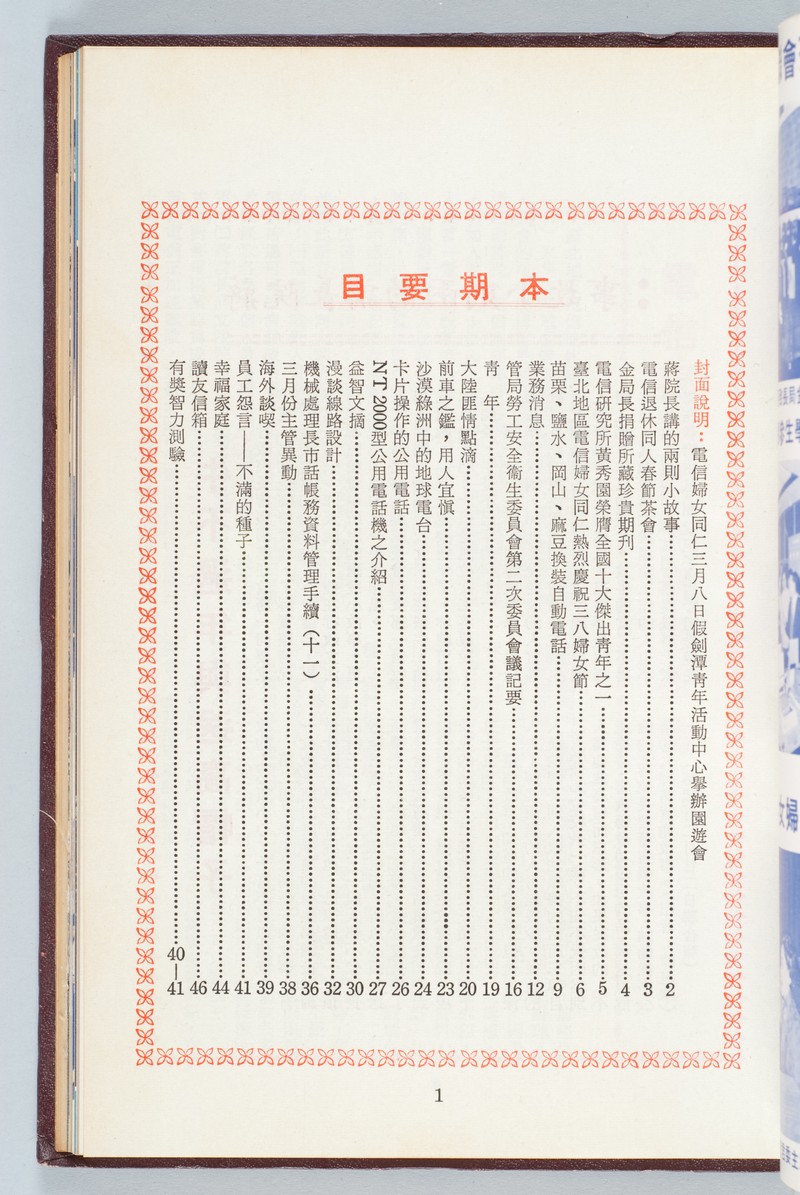 本期要目
封面說明：電信婦女同仁三月八日假劍潭青年活動中心舉辦園遊會
蔣院長講的兩則小故事……2
電信退休同人春節茶會……3
金局長捐贈所藏珍貴期刊……4
電信研究所黃秀園榮膺全國十大傑出青年之一……5
臺北地區電信婦女同仁熱烈慶祝三八婦女節……6
苗栗、鹽水、岡山、麻豆換裝自動電話……9
業務消息……12
管局勞工安全衞生委員會第二次委員會議記要……16
青　年……19
大陸匪情點滴……20
前車之鑑，用人宜愼……23
沙漠綠洲中的地球電台……24
卡片操作的公用電話……26
NT 2000型公用電話機之介紹……27
益智文摘……30
漫談線路設計……32
機械處理長市話帳務資料管理手續（十一）……36
三月份主管異動……38
海外談喫……39
員工怨言——不滿的種子……41
幸福家庭……44
讀友信箱……46
有獎智力測驗……40—41
1